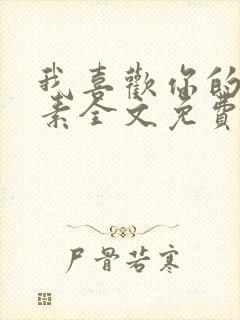 我喜歡你的
素全文免費
尸骨若寒